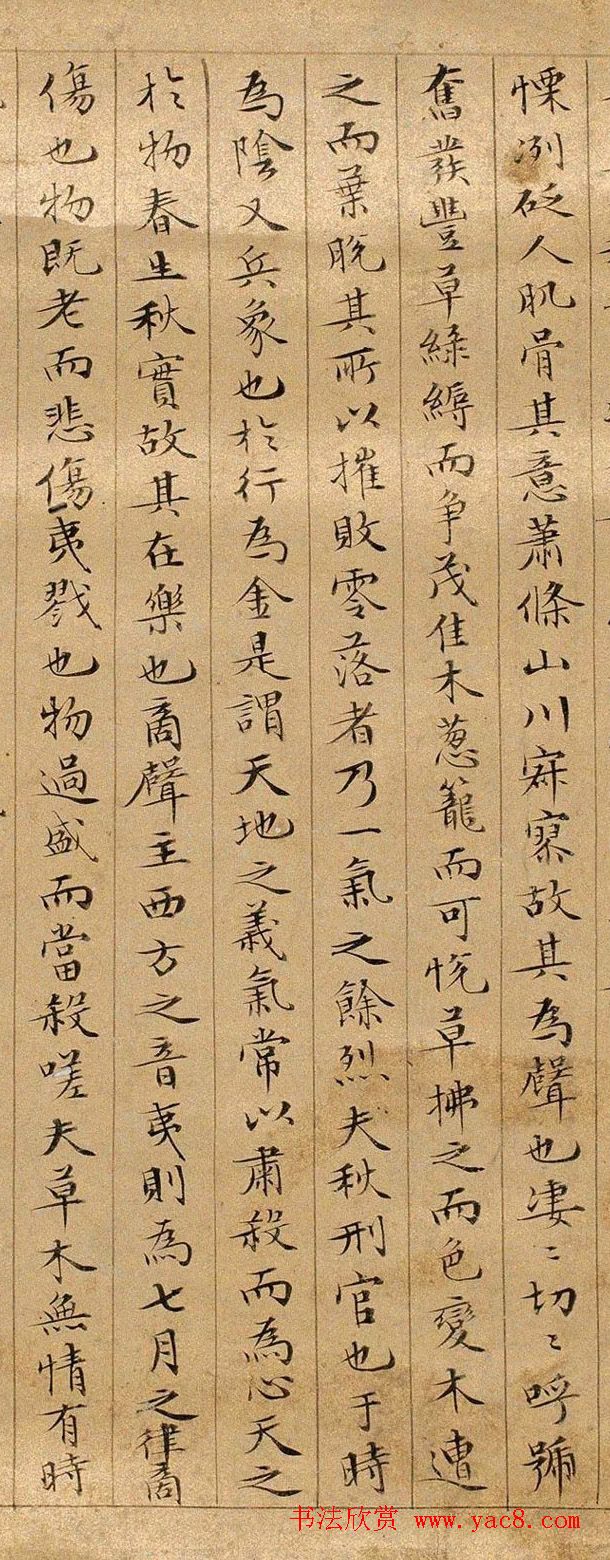 慄冽砭人肌骨其意蕭條山川寂寥故其為聲也凄〻切〻呼號
奮發豐草綠縟而争茂佳木蔥籠而可悅草拂之而色變木遭
之而葉脫其所以摧敗零落者乃一氣之餘烈夫秋刑官也于時
為陰又兵象也於行為金是謂天地之義氣常以肅殺而為心天之
於物春生秋實故其在樂也商聲主西方之音夷則為七月之律商
傷也物既老而悲傷夷戮也物過盛而當殺嗟夫草木無情有時
书法欣赏 www.yac8.com